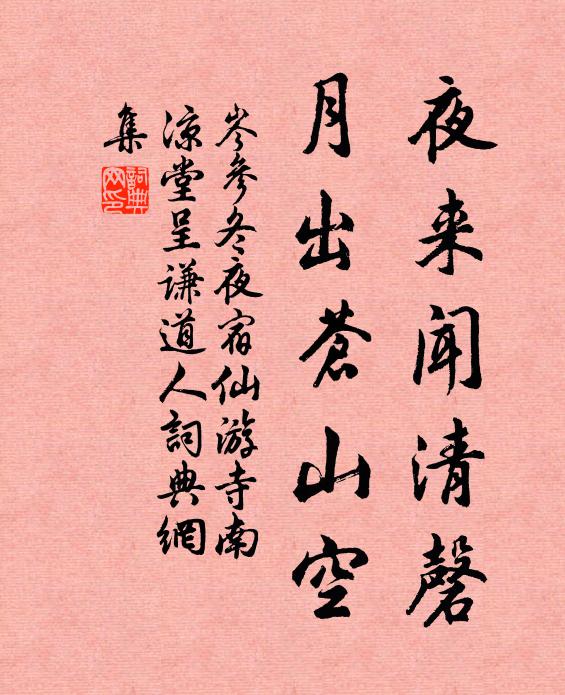 夜来闻清磬
月出蒼山空
岑参冬夜宿仙游寺南
凉堂呈谦道人詞典網
集
詞典网印